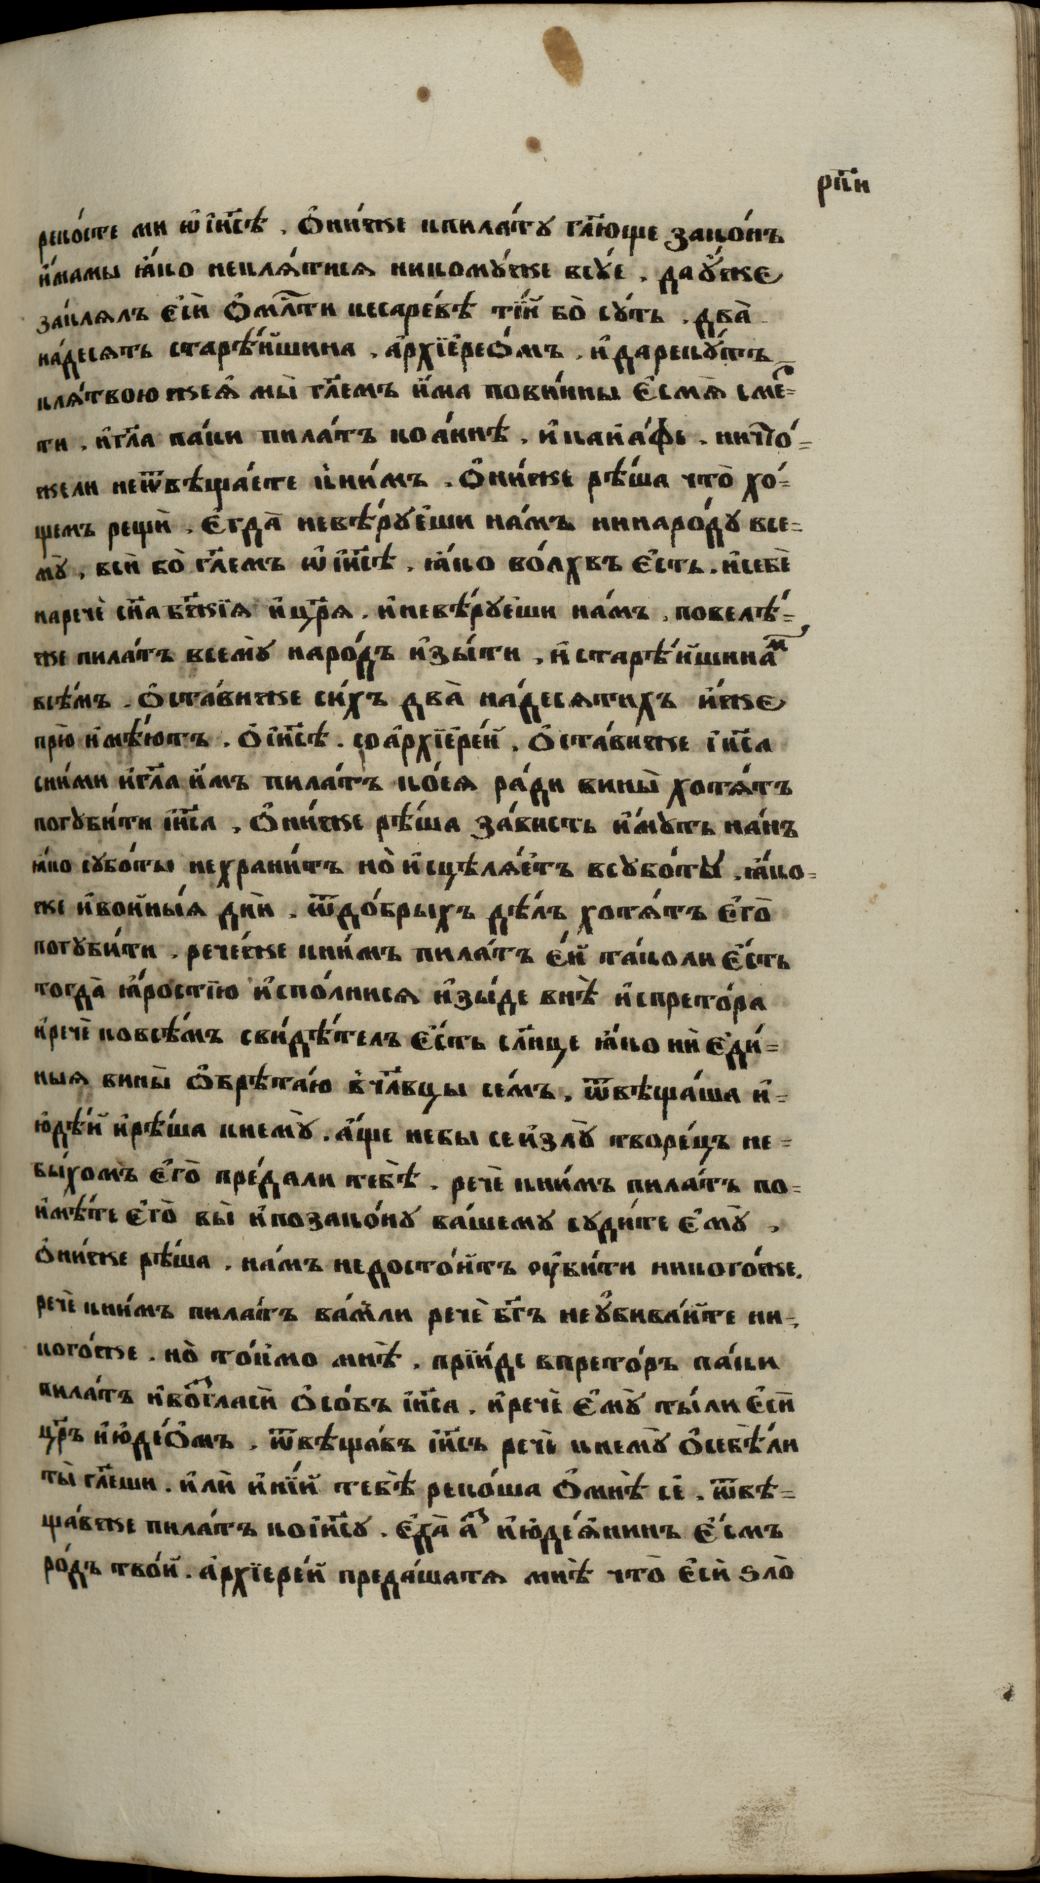 рп҃и
реко́сте ми ѡ҆ і҆и҃сѣ . Ѻ҆ни́же кпила́ту гл҃юще зако́нъ
и҆́мамы ꙗ҆́ко неклѧ́тисѧ никому́же всꙋ́е . даᲂу҆́же
закля́лъ є҆сѝ Ѻ҆мл҃ти кесаре́вѣ ті́и бо̀ сꙋ́ть . два̀
на́десѧть старѣ́йшина . а҆рхїе҆рео́мъ . и҆ дареку́тъ
клѧ́твою жеѧ҆̀ мы̀ гл҃емъ и҆́ма пови́нны є҆смѧ̀ сме́р=
ти . и҆гл҃а па́ки пила́тъ коа́ннѣ . и҆ каиа́фѣ . ничто́=
жели неѿвѣща́ете кни́мъ . Ѻ҆ни́же рѣ́ша что̀ хо́=
щемъ рещѝ . Є҆гда̀ невѣ́руеши на́мъ нинаро́ду все=
му̀ . всѝ бо̀ гл҃емъ ѡ҆ і҆и҃сѣ . ꙗ҆́ко во́лхвъ є҆́сть . и҆ себѐ
наречѐ сн҃а бж҃їѧ и҆ цр҃ѧ . и҆ невѣ́руеши на́мъ . повелѣ́=
же пила́тъ всему̀ наро́дъ и҆зы́ти . и҆ старѣ́йшина́м
всѣ́мъ . Ѻ҆ста́вивже си́хъ два̀ на́десѧтихъ и҆́же
прю̀ и҆мѣ́ютъ . Ѻ҆ і҆и҃сѣ . со а҆рхїе҆ре́й . Ѻ҆ста́вивже і҆и҃са
сни́ми и҆гл҃а и҆́мъ пила́тъ ко́еѧ ра́ди вины̀ хотѧ́тъ
погуби́ти і҆и҃са . Ѻ҆ни́же рѣ́ша за́висть и҆́муть на́нь
ꙗ҆́ко субо́ты нехрани́тъ но̀ и҆сцѣлѧ́етъ всубо́ты . ꙗ҆́ко=
же и҆ во и҆ны́ѧ дни̑ . ѿдо́брыхъ дѣ́лъ хотѧ́тъ є҆го̀
погуби́ти . рече́же кни́мъ пила́тъ є҆́й та́коли є҆́сть
тогда̀ ꙗ҆́ростїю и҆спо́лнисѧ и҆зы́де внѣ̀ и҆спрето́ра
и҆ речѐ ковсѣ́мъ свидѣ́тель є҆́сть сл҃нце ꙗ҆́ко нѝ є҆ди́=
ныѧ вины̀ Ѻ҆брѣта́ю в чл҃вцы се́мъ . ѿвѣща́ша и҆=
юдѣ́й и҆ рѣ́ша кнему̀ . а҆́ще небы се и҆злу̀ творе́цъ не=
бы́хомъ є҆го̀ пре́дали тебѣ̀ . речѐ кни́мъ пила́тъ по=
и҆мѣ́те є҆го̀ вы̀ и҆ позако́ну ва́шему суди́те є҆му̀ .
Ѻ҆ни́же рѣ́ша . на́мъ недосто́итъ ᲂу҆би́ти никого́же .
речѐ кни́мъ пила́тъ ва́мли речѐ бг҃ъ неᲂу҆бива́йте ни=
кого́же . но̀ то́кмо мнѣ̀ . прїи́де впрето́ръ па́ки
пила́тъ и҆ возгласѝ Ѻ҆со́бь і҆и҃са . и҆ речѐ є҆му̀ ты́ли є҆сѝ
цр҃ь и҆юде́ѻмъ . ѿвѣща́въ і҆и҃съ речѐ кнему̀ Ѻ҆себѣ́ли
ты̀ гл҃еши . и҆лѝ и҆ні́и тебѣ̀ реко́ша Ѻ҆мнѣ̀ сѐ . ѿвѣ=
ща́вже пила́тъ ко і҆и҃су . є҆да̀ а҆з и҆юде́ѧнинъ є҆́смъ
ро́дъ тво́й . а҆рхїере́й преда́шатѧ мнѣ̀ что̀ є҆сѝ зло̀